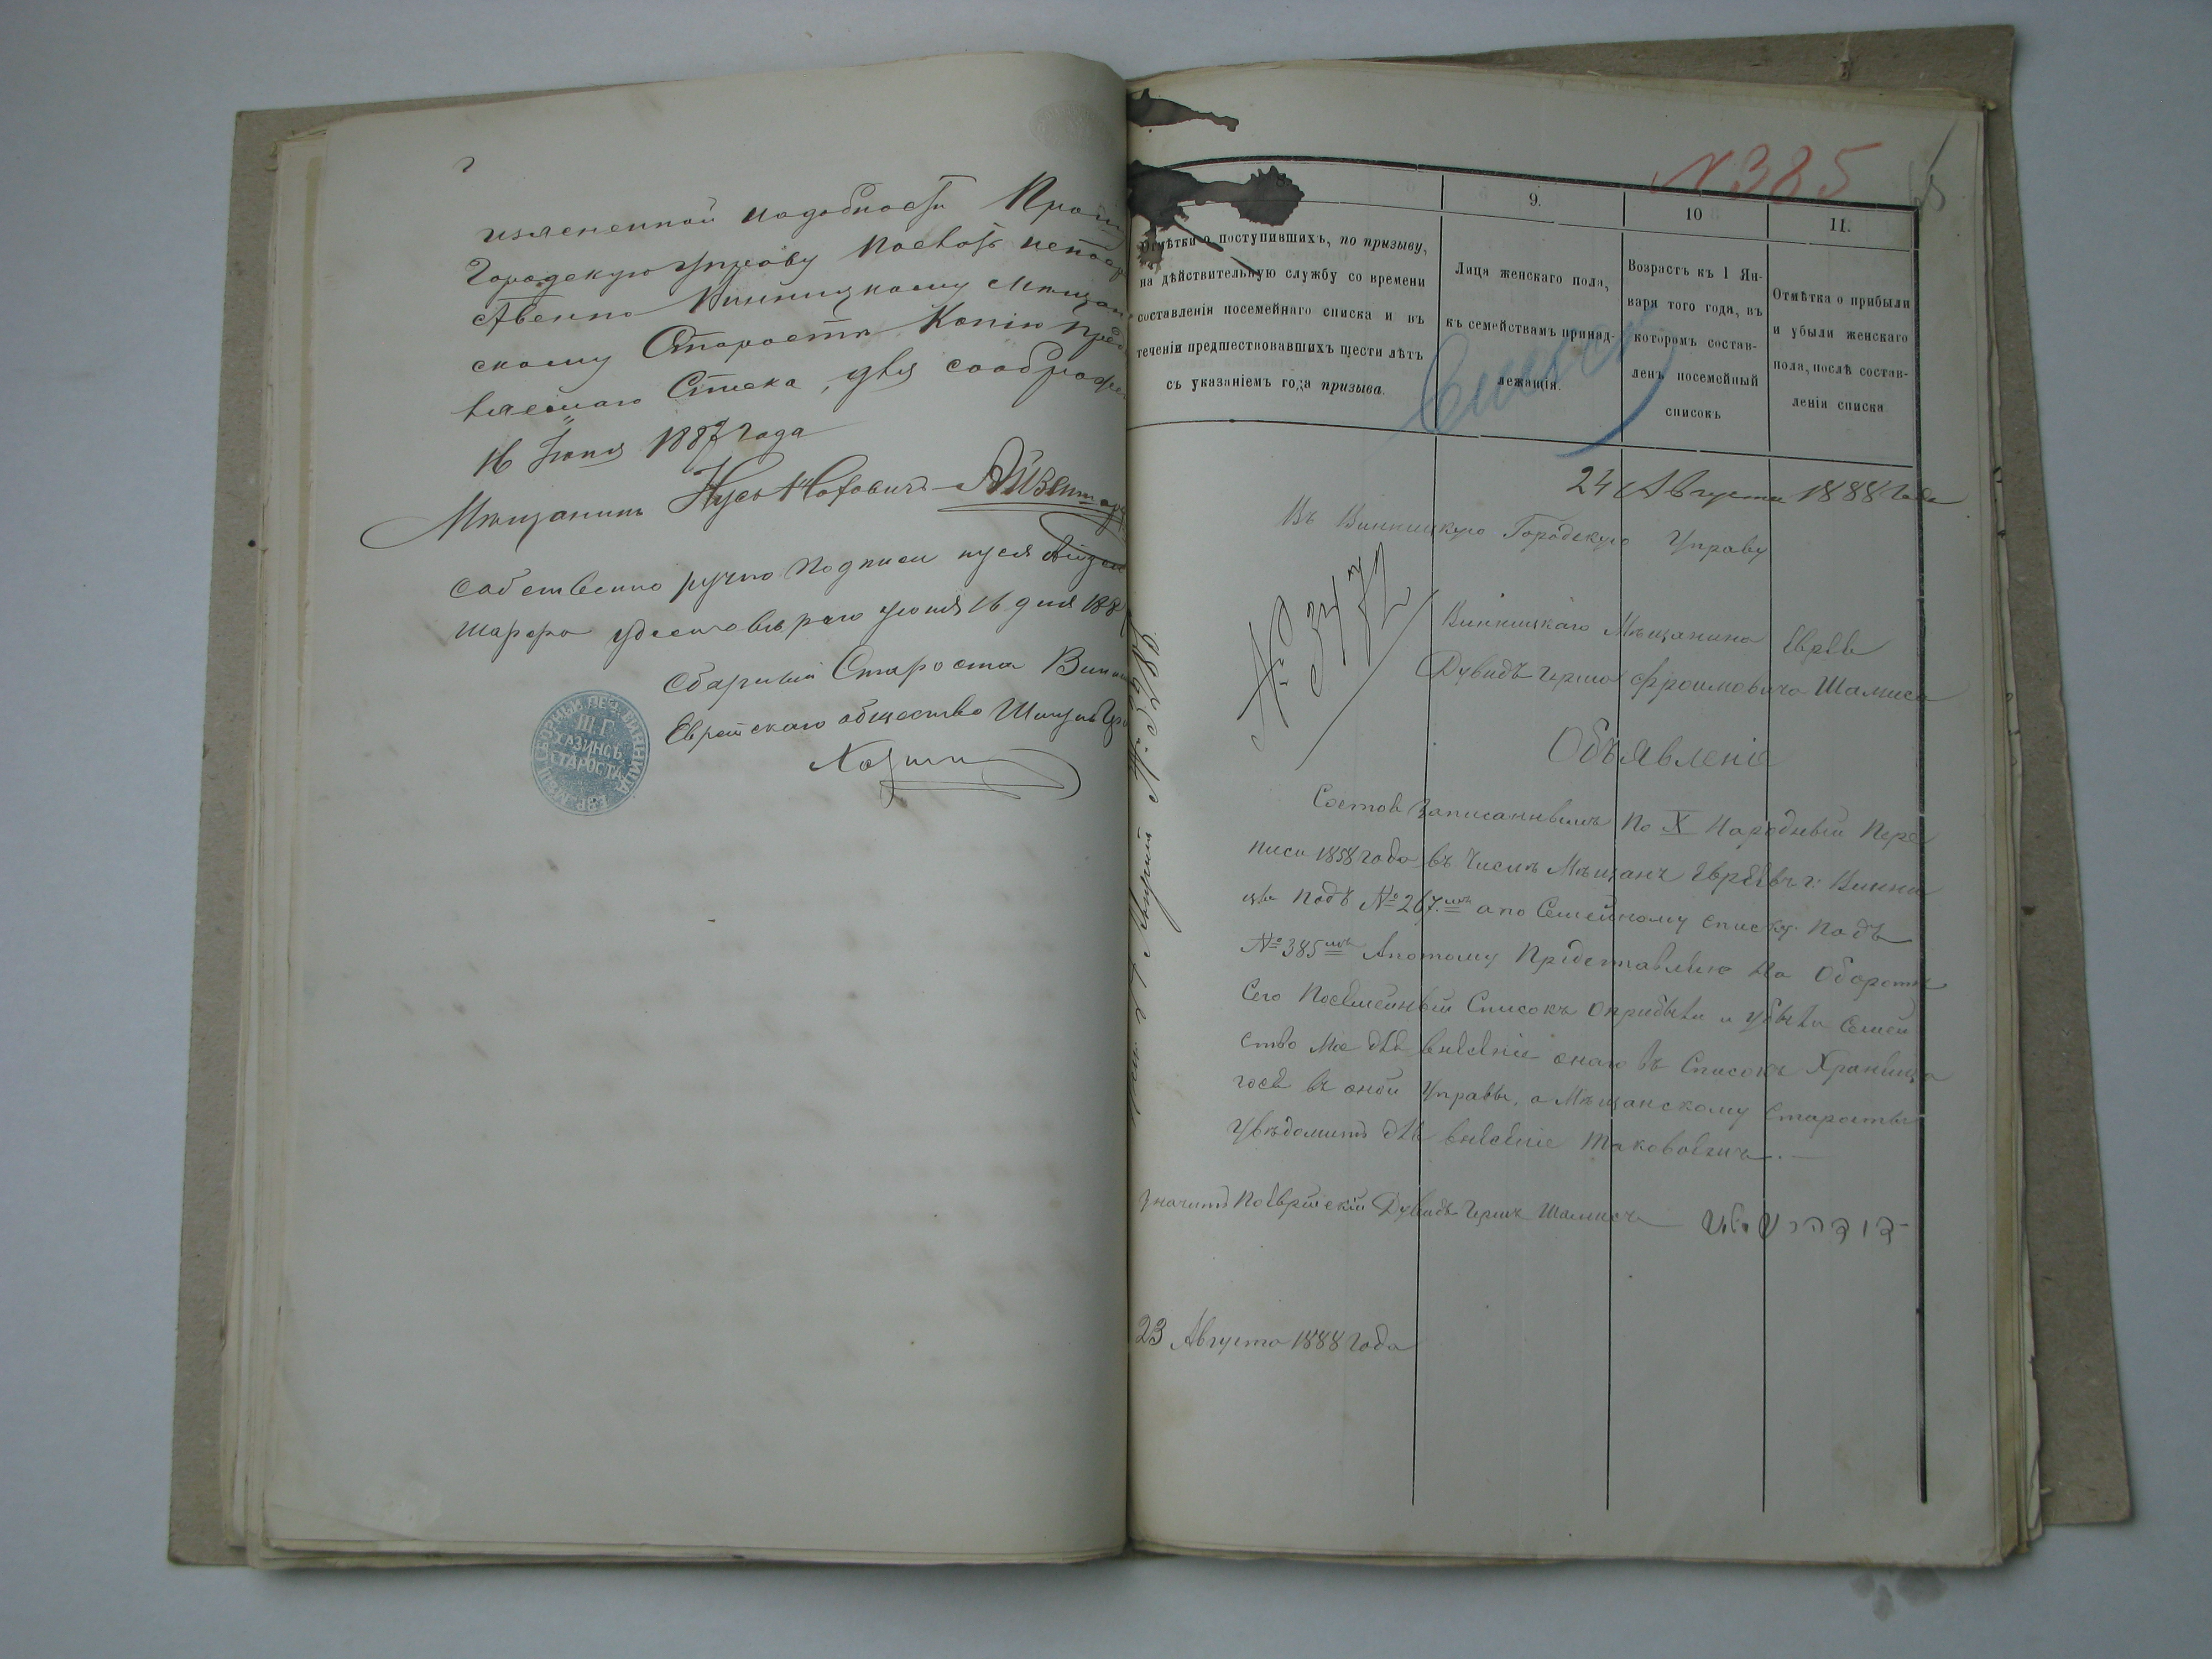 изясненной надобности Прошу
Городскую Управу
ственно Винницкому Мѣщан
скому Старостѣ Копію пред
вляемаго Списка, для соображен
16 Іюня 1887 года
Мѣщанинъ Нусь Айзеншар
Собственно ручно подписи Нуся Айзен
шарфа Іюня 16 дня 188
Сборный Староста Винни
Еврейскаго общества
Хазинъ
СБОРНЫЙ ВИННИЦА ЕВР. МѢЩ.
Ш.Г.
ХАЗИНЪ
СТАРОСТА
№ 385
9.
10
11.
Отмѣтки о поступившихъ, по призыву,
на дѣйствительную службу со времени
составленія посемейнаго списка и въ
теченіи предшествовавшихъ шести лѣтъ
съ указаніемъ года призыва.
Лица женскаго пола,
къ семействамъ принад-
лежащія.
Возрастъ къ 1 Ян-
варя того года, въ
которомъ состав-
ленъ посемейный
списокъ
Отмѣтка о прибыли
и убыли женскаго
пола, послѣ состав-
ленія списка
24 Августа 1888 года
Въ Винницкую Городскую Управу
№ 3472
Винницкаго Мѣщанина Еврея
Дувидъ Герша Фроимовича Шамиса
Объявленіе
Состоя записаннымъ По X Народный Пере
писи 1858 года въ Числѣ Мѣщанъ Евреевъ г. Винни
цы Подъ № 267.мъ а по Семейному списку Подъ
№ 385мъ Апотому Представляю На Оборотѣ
Сего Посемейный Списокъ Оприбыли и убыли Семей
ство Мое для внесеніе онаго въ Списокъ Хранища
гося въ оной Управы, а Мѣщанскому Старосты
Увѣдомитъ для внесеніе таковыемъ.
Значитъ Поеврейскій Дувидъ Гершъ Шамисъ
23 Августа 1888 года